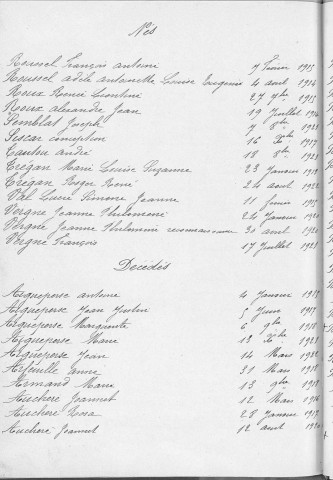 Nés
Roussel François Antoine 7 février 1915
Roussel Adèle Antoinette Louise Eugénie 4 avril 1914
Roux Remi Leontine 27 7bre 1915
Roux Alexandre Jean 19 Juillet 1916
Semblat Joseph 7 8bre 1921
Siscar conception 16 Xbre 1917
Tautou André 18 8bre 1921
Trégan Marie Louise Suzanne 23 Janvier 1919
Trégan Roger René 24 avril 1922
Val Lucie Simone Jeanne 11 1915
Vergne Jeanne Philomène 24 Janvier 1920
Vergne Jeanne Philomène reconnaissance 30 avril 1920
Vergne François 17 Juillet 1921
Décédés
Aigueperse Antoine 4 Janvier 1913
Aigueperse Jean Justin 5 Juin 1917
Aigueperse Marguerite 6 9bre 1918
Aigueperse Marie 13 Xbre 1921
Aigueperse Jean 14 Mars 1922
Arfeuille Anne 31 Mars 1918
Armand Marie 13 9bre 1918
Auchère Jeannet 12 Mars 1916
Auchère Rosa 28 Janvier 1917
Auchère Jeannet 12 avril 1920